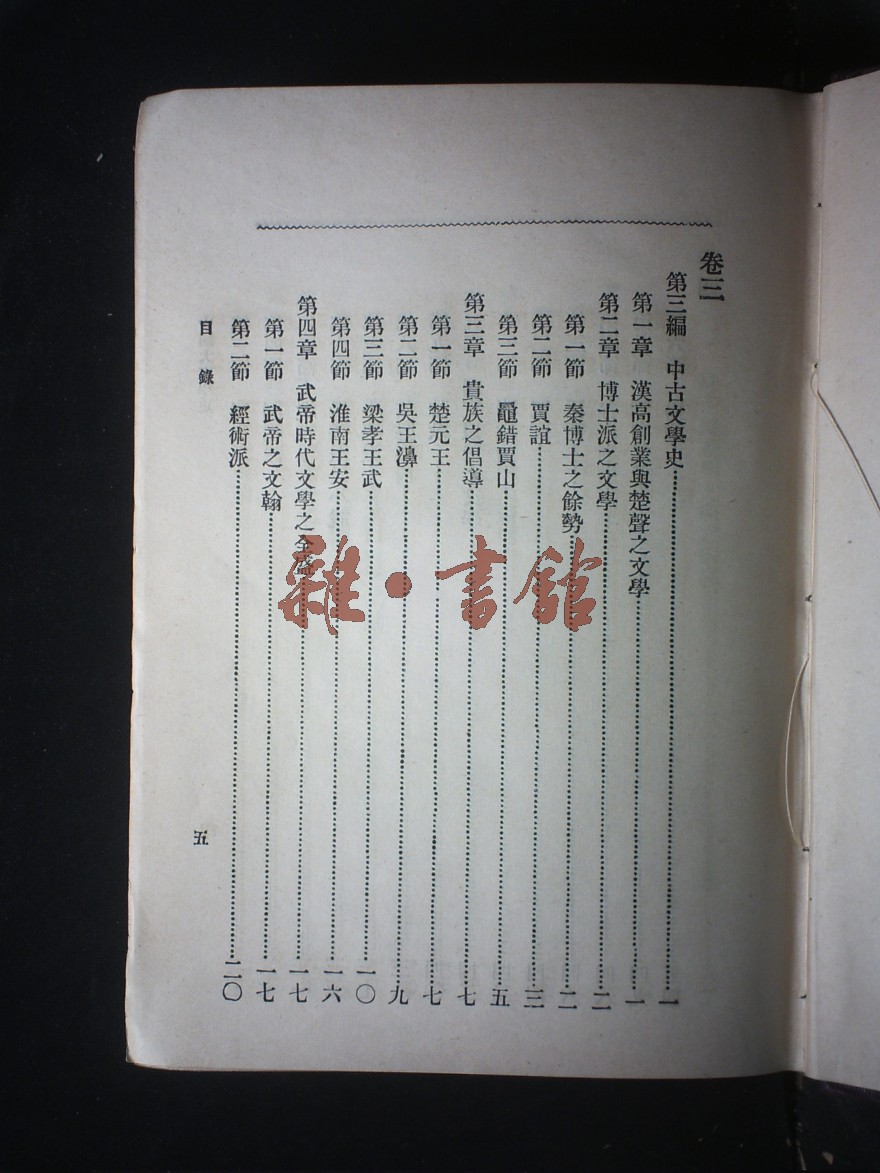 卷三
第三編　中古文學史……一
第一章　漢高創業與楚聲之文學……一
第二章　博士派之文學……二
第一節　秦博士之餘勢……二
第二節　賈誼……三
第三節　鼂錯賈山……五
第三章　貴族之倡導……七
第一節　楚元王……七
第二節　吳王濞……九
第三節　梁孝王武……一〇
第四節　淮南王安……一六
第四章　武帝時代文學之全盛……一七
第一節　武帝之文翰……一七
第二節　經術派……二〇
目錄　五
雜·書館